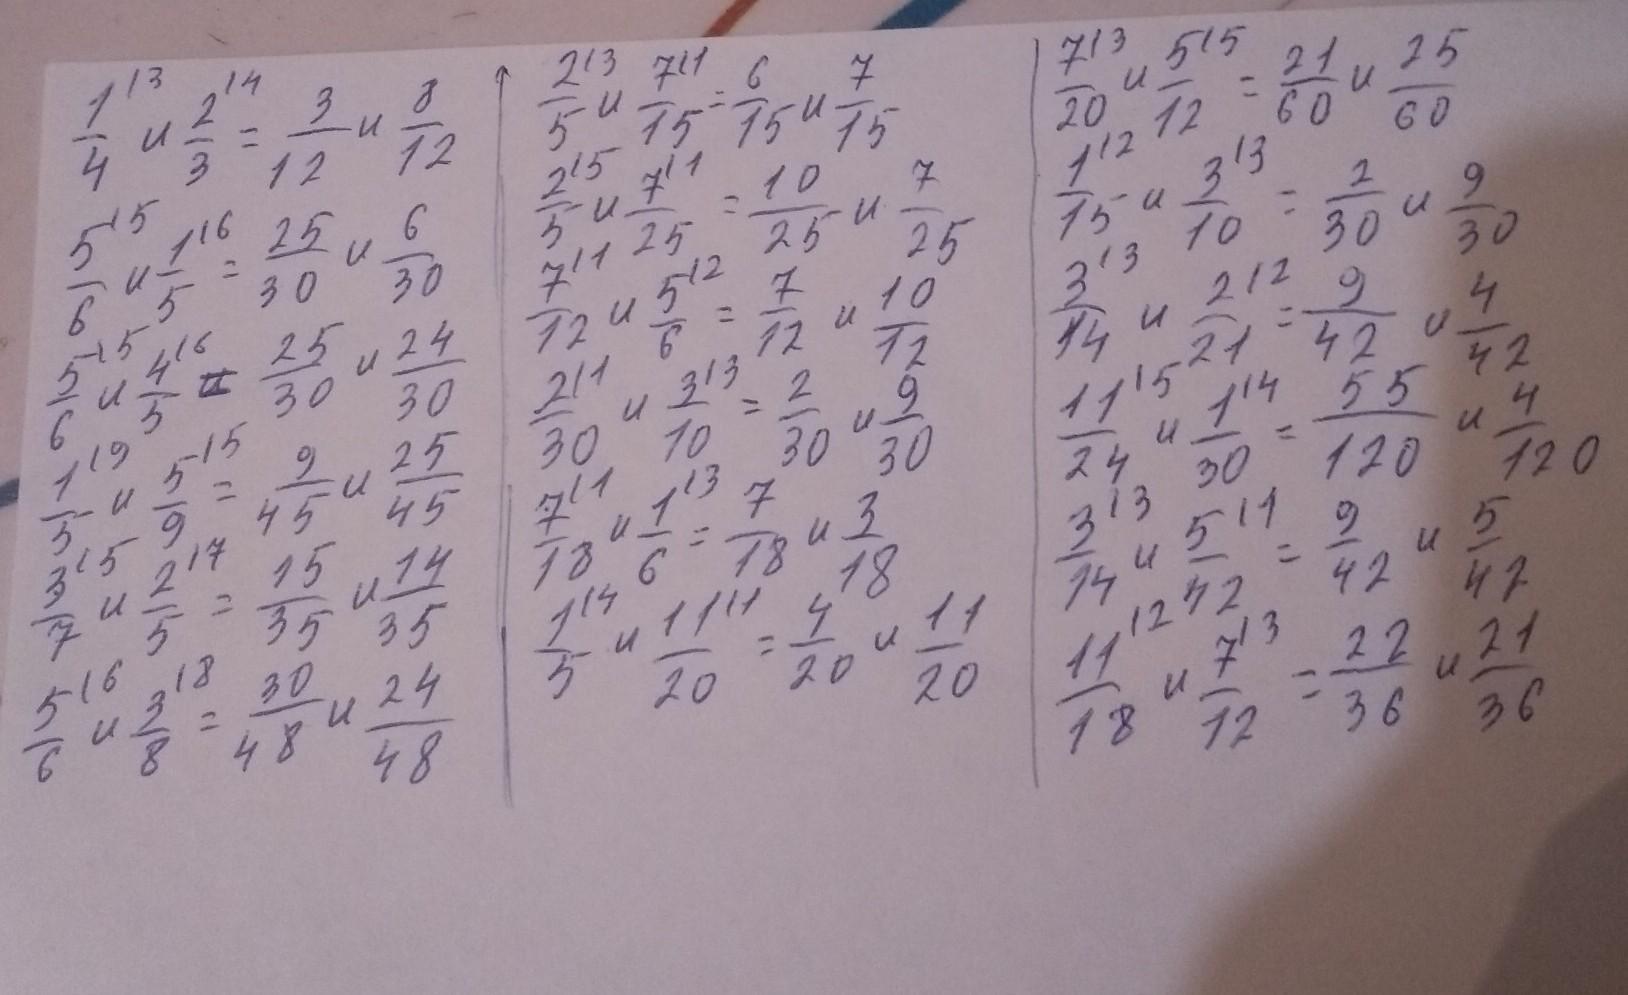 1/4 \3 и 2/3 \4 = 3/12 и 8/12
5/6 \5 и 1/5 \6 = 25/30 и 6/30
5/6 \5 и 4/5 \6 = 25/30 и 24/30
1/5 \9 и 5/9 \5 = 9/45 и 25/45
3/7 \5 и 2/5 \7 = 15/35 и 14/35
5/6 \6 и 3/8 \8 = 30/48 и 24/48
2/5 \3 и 7/15 \1 = 6/15 и 7/15
2/5 \5 и 7/25 \1 = 10/25 и 7/25
7/12 \1 и 5/6 \2 = 7/12 и 10/12
2/30 \1 и 3/10 \3 = 2/30 и 9/30
7/18 \1 и 1/6 \3 = 7/18 и 3/18
1/5 \4 и 11/20 \1 = 4/20 и 11/20
7/20 \3 и 5/12 \5 = 21/60 и 25/60
1/15 \2 и 3/10 \3 = 2/30 и 9/30
3/14 \3 и 2/21 \2 = 9/42 и 4/42
11/24 \5 и 1/30 \4 = 55/120 и 4/120
3/14 \3 и 5/42 \1 = 9/42 и 5/42
11/18 \2 и 7/12 \3 = 22/36 и 21/36